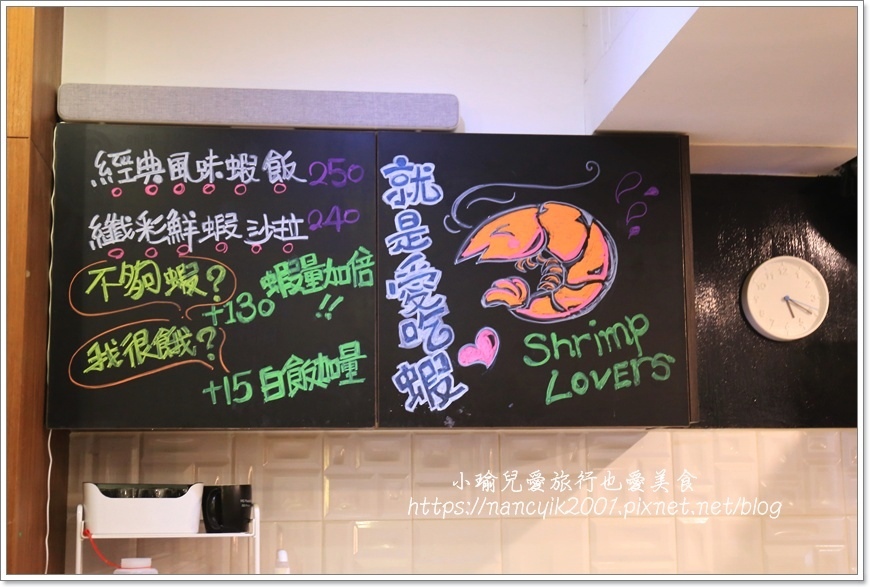 經典風味蝦飯 250
纖彩鮮蝦沙拉 240
不夠蝦?
+130 蝦量加倍!!
我很餓?
+15 白飯加量
就是愛吃蝦
Shrimp
LOVERS
小瑜兒愛旅行也愛美食
https://nancyik2001.pixnet.net/blog